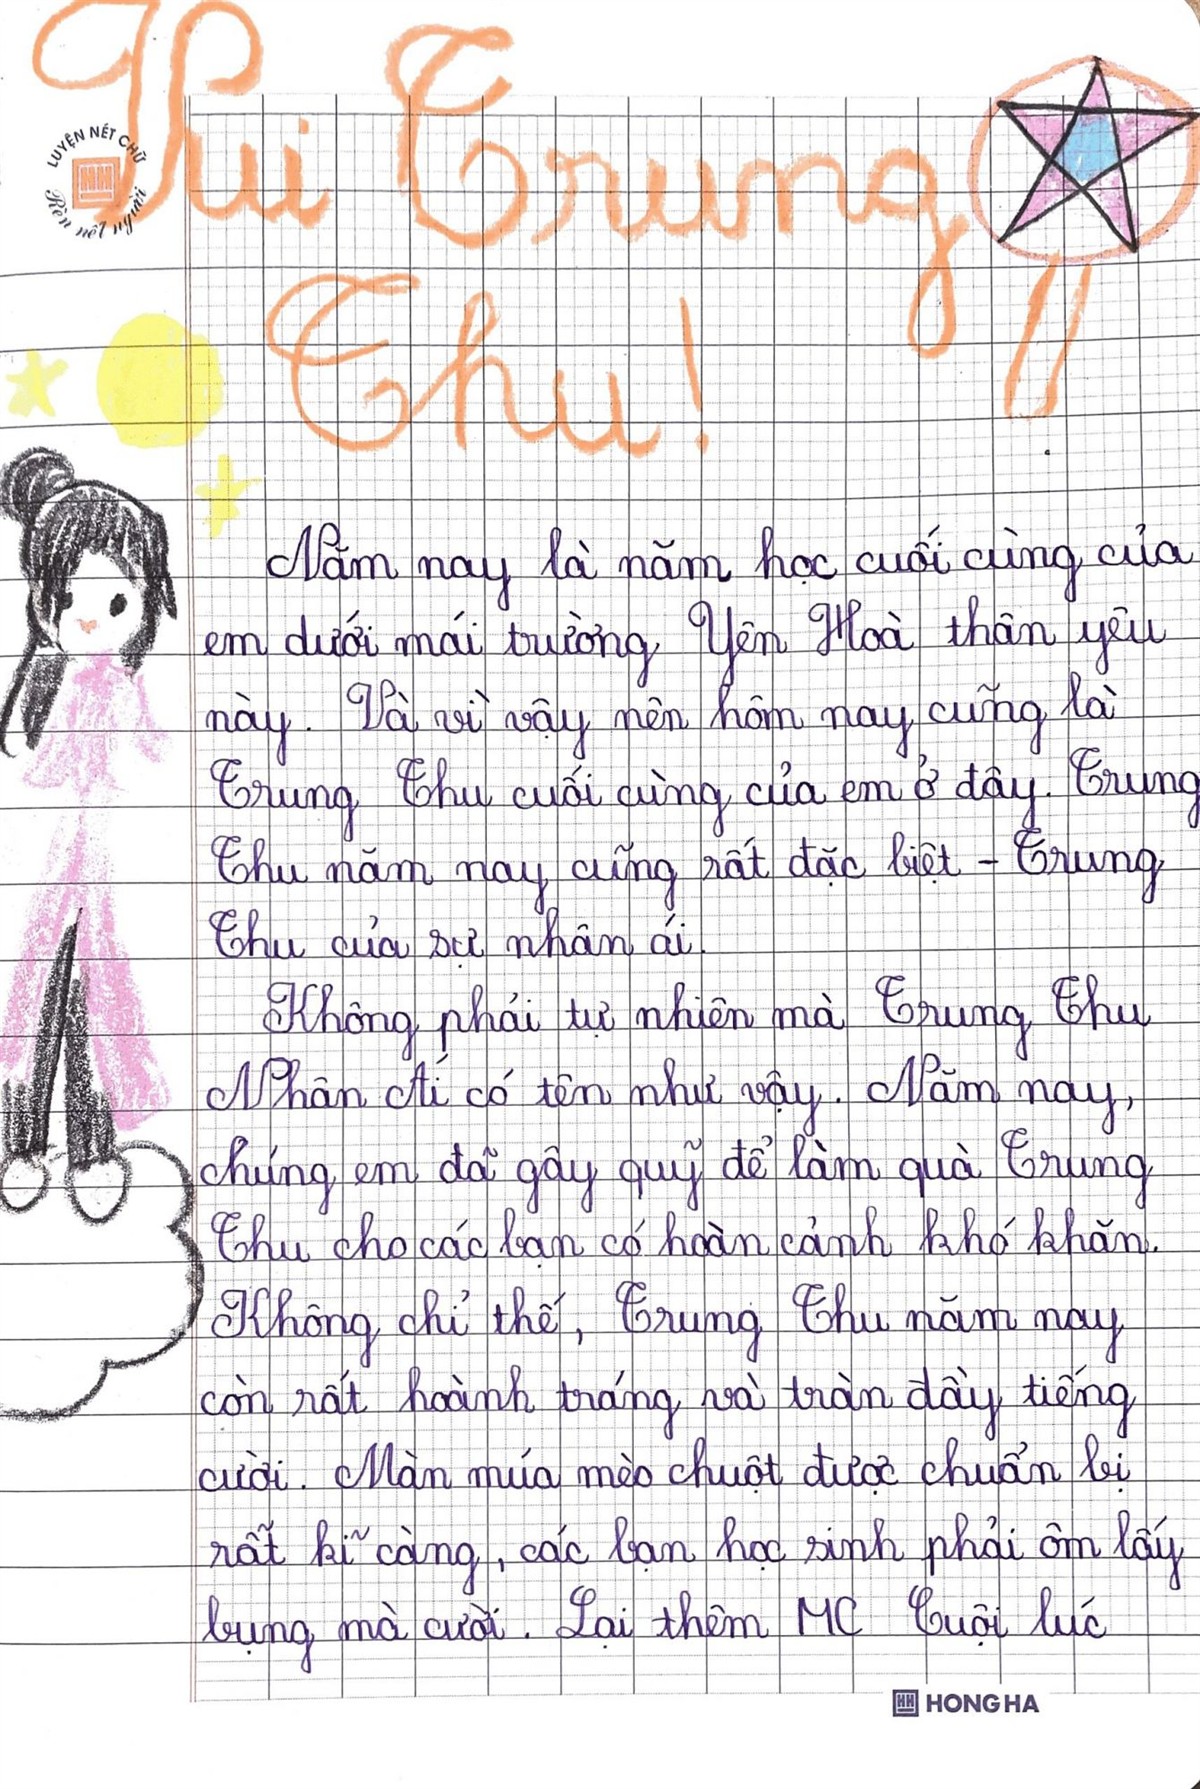 Vui Trung
LUYỆN NÉT CHỮ
Rèn nết người
Thu!
Năm nay là năm học cuối cùng của
em dưới mái trường Yên Hoà thân yêu
này. Và vì vậy nên hôm nay cũng là
Trung Thu cuối cùng của em ở đây. Trung
Thu năm nay cũng rất đặc biệt - Trung
Thu của sự nhân ái.
Không phải tự nhiên mà Trung Thu
Nhân Ái có tên như vậy. Năm nay,
chúng em đã gây quỹ để làm quà Trung
Thu cho các bạn có hoàn cảnh khó khăn.
Không chỉ thế, Trung Thu năm nay
còn rất hoành tráng và tràn đầy tiếng
cười. Màn múa mèo chuột được chuẩn bị
rất kĩ càng, các bạn học sinh phải ôm lấy
bụng mà cười. Lại thêm MC Cuội lúc
HONG HA